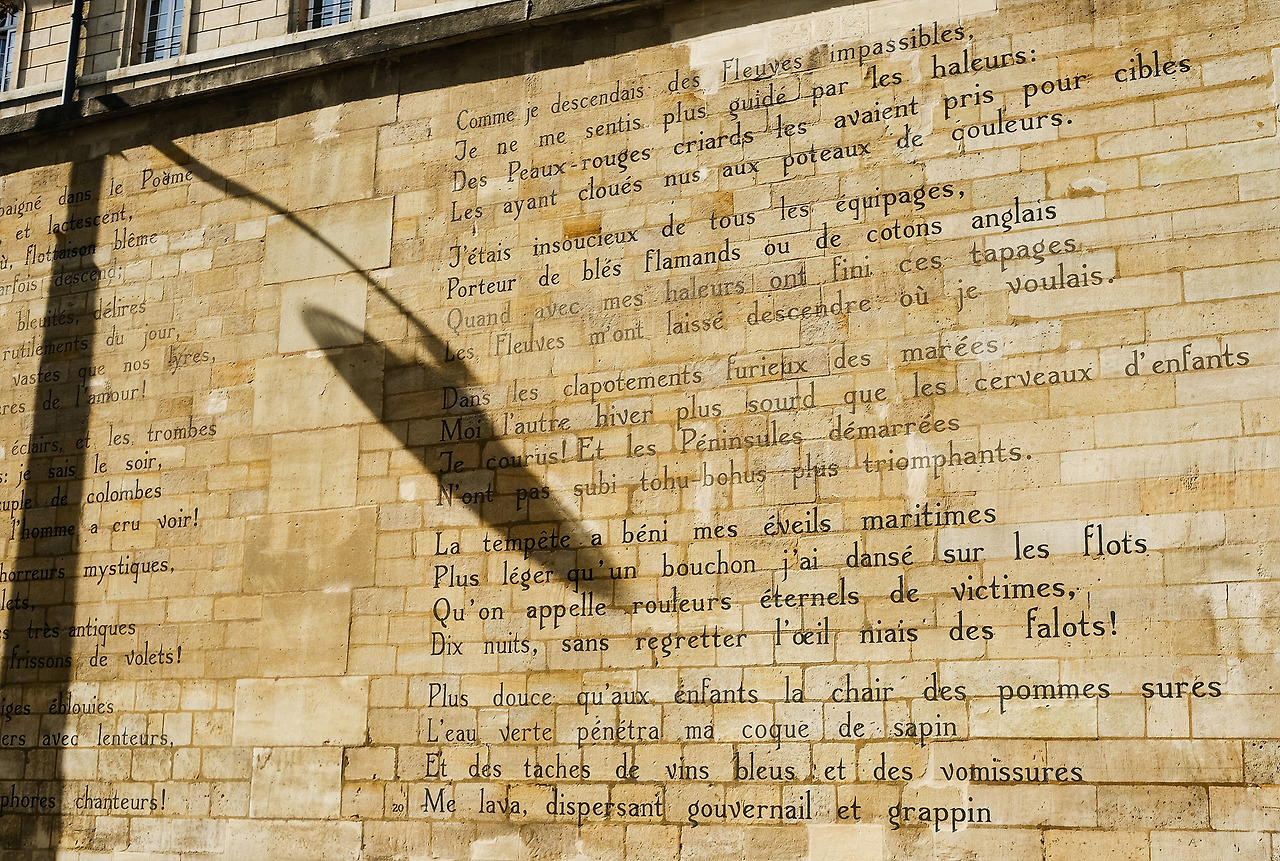 Comme je descendais des Fleuves impassibles,
Je ne me sentis plus guidé par les haleurs:
Des Peaux-rouges criards les avaient pris pour cibles
Les ayant cloués nus aux poteaux de couleurs.
J'étais insoucieux de tous les équipages,
Porteur de blés flamands ou de cotons anglais
Quand avec mes haleurs ont fini ces tapages
Les Fleuves m'ont laissé descendre où je voulais.
Dans les clapotements furieux des marées
Moi l'autre hiver plus sourd que les cerveaux d'enfants
Je courus! Et les Péninsules démarrées
N'ont pas subi tohu-bohus plus triomphants.
La tempête a béni mes éveils maritimes
Plus léger qu'un bouchon j'ai dansé sur les flots
Qu'on appelle rouleurs éternels de victimes,
Dix nuits, sans regretter l'œil niais des falots!
Plus douce qu'aux enfants la chair des pommes sures
L'eau verte pénétra ma coque de sapin
Et des taches de vins bleus et des vomissures
20 Me lava, dispersant gouvernail et grappin
baigné dans le Poème
et lactescent,
ù, flottaison blême
arfois descend;
bleuités, délires
rutilements du jour,
vastes que nos lyres,
ères de l'amour!
éclairs, et les trombes
s: je sais le soir,
uple de colombes
l'homme a cru voir!
horreurs mystiques,
lets,
s très-antiques
frissons de volets!
iges éblouies
ers avec lenteurs,
phores chanteurs!